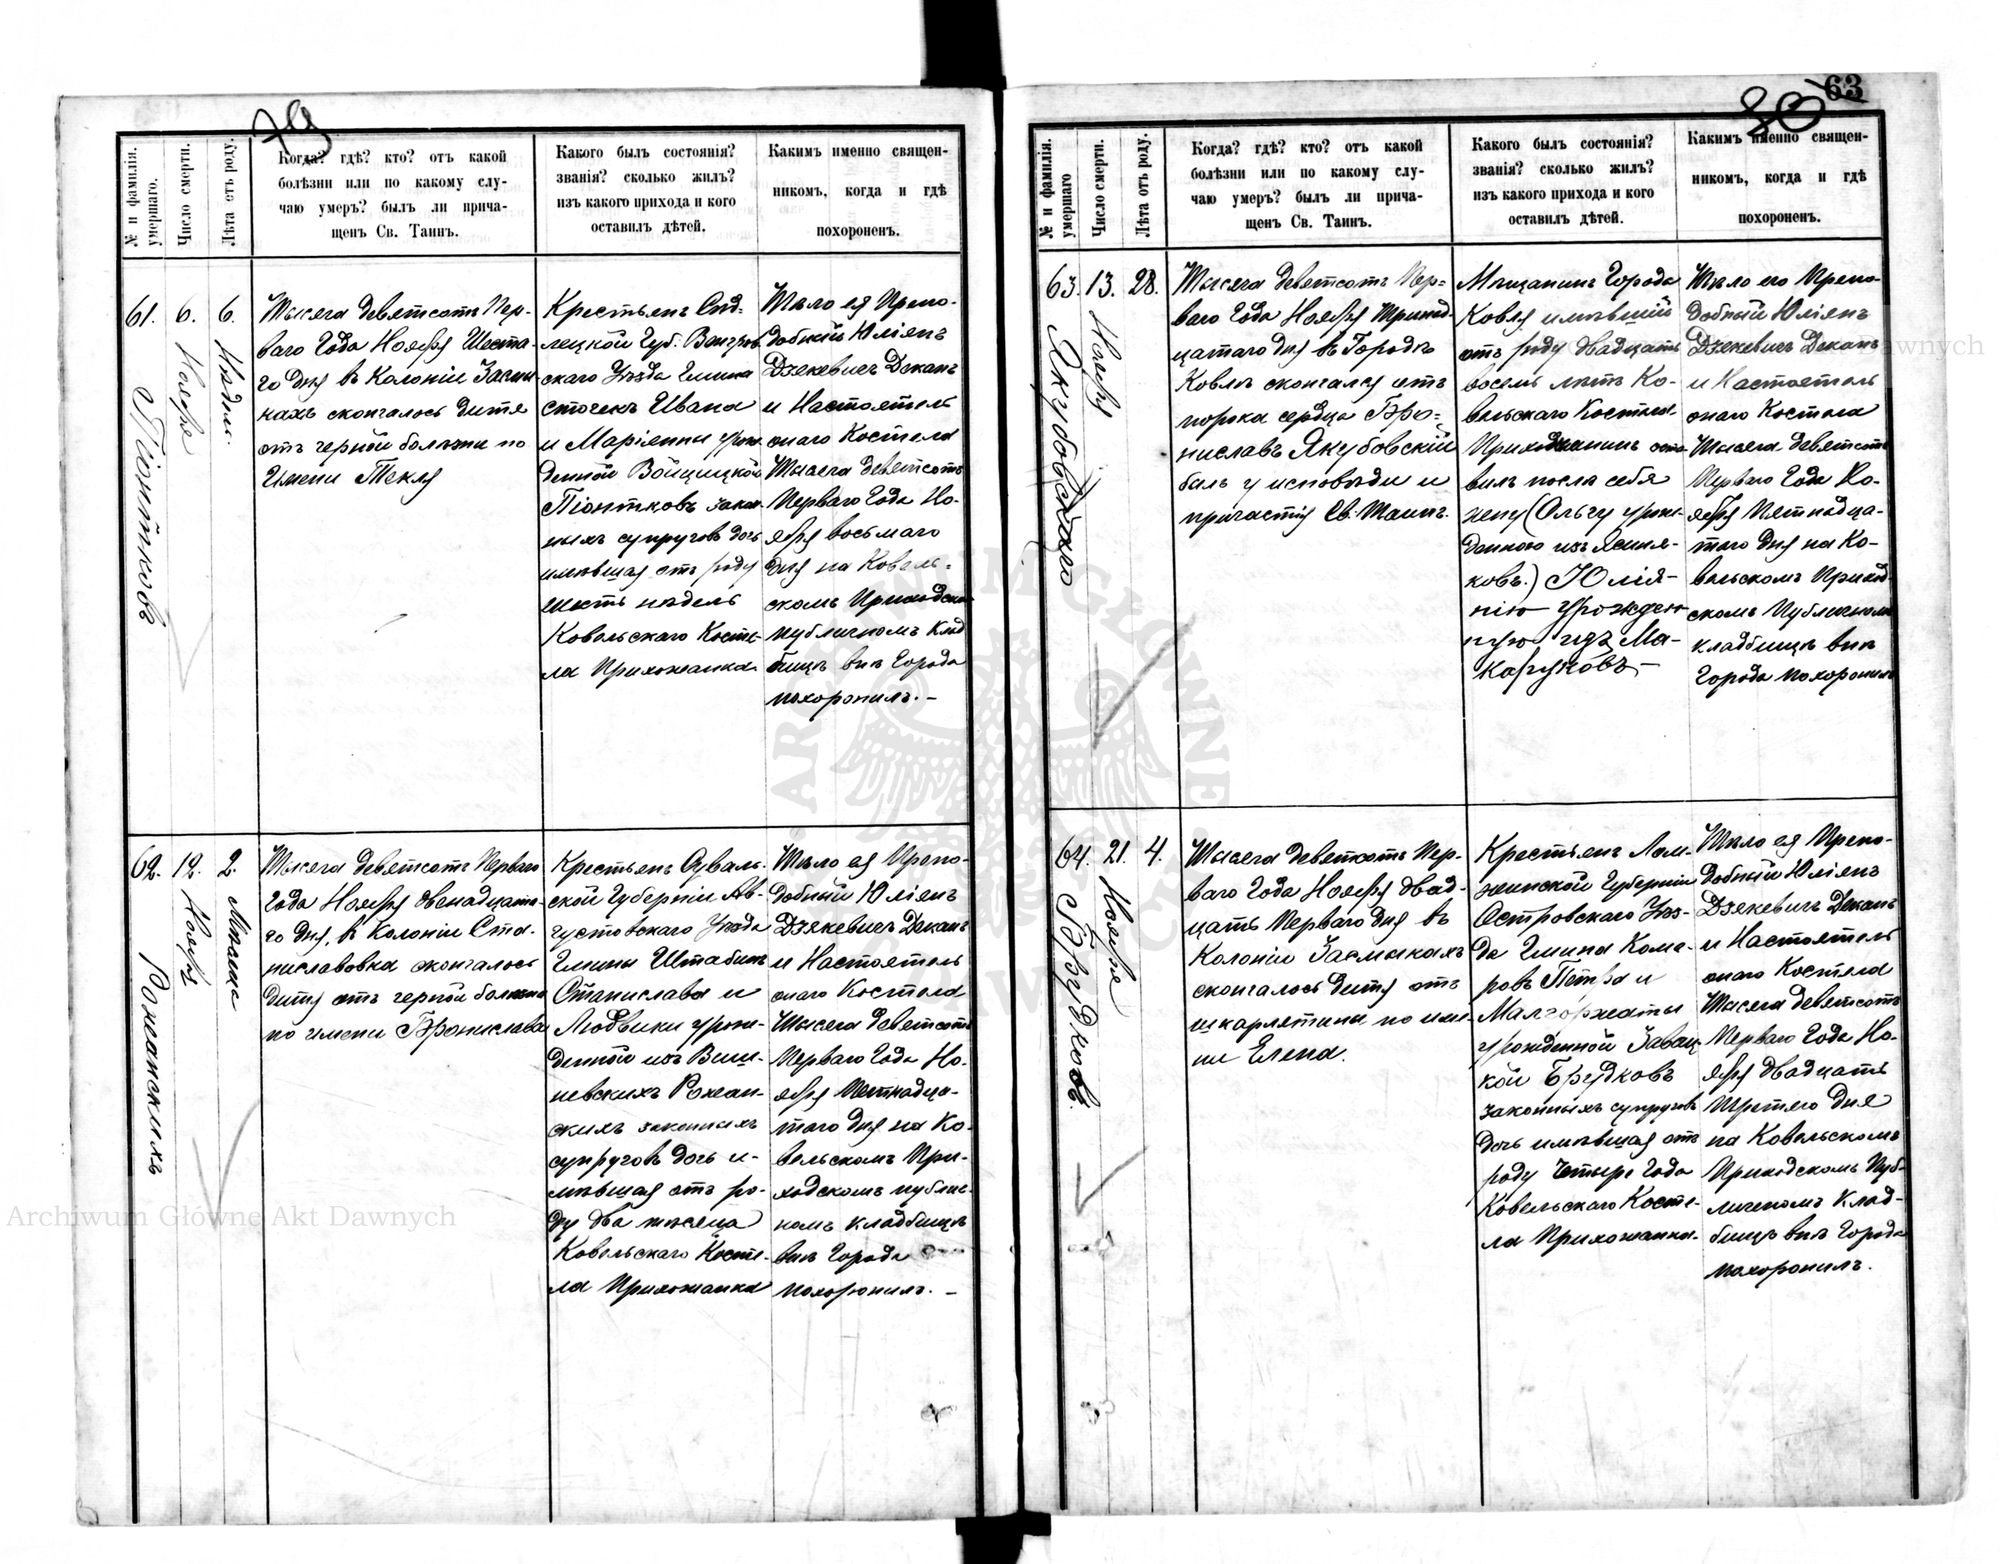 79
№ и фамилія умершаго.
Число смерти.
Лѣта отъ роду.
Когда? гдѣ? кто? отъ какой
болѣзни или по какому слу-
чаю умеръ? былъ ли прича-
щенъ Св. Таинъ.
Какого былъ состоянія?
званія? сколько жилъ?
изъ какого прихода и кого
оставилъ дѣтей.
Какимъ именно священ-
никомъ, когда и гдѣ
похороненъ.
61.
Піонтковъ
6.
Ноября
6.
Недѣль.
Тысяча девятсотъ Пер-
ваго Года Ноября Шеста-
го дня въ Колоніи Засмы-
кахъ скончалось дитя
отъ черной болѣзни по
Имени Текля
Крестьянъ Сѣд-
лецкой Губ. Венгров
скаго Уѣзда Гмины
Сточекъ Ивана
и Маріянны урож-
денной Войцицкой
Піонтковъ закон-
ныхъ супруговъ дочь
имѣвшая отъ роду
шесть недѣль
Ковельскаго Косте-
ла Прихожанка
Тѣло ея Препо-
добный Юліянъ
Дзекевичъ Деканъ
и Настоятель
онаго Костела
Тысяча девятсотъ
Перваго Года Но-
ября восьмаго
дня на Ковель-
скомъ Приходском
публичномъ клад
бищѣ внѣ Города
похоронилъ. —
62.
Рожанскихъ
12.
Ноября
2.
Мѣсяца
Тысяча девятсотъ Перваго
Года Ноября двенадцата-
го дня, въ Колоніи Ста-
ниславовка скончалось
дитя отъ черной болѣзни
по имени Бронислава
Крестьянъ Суваль-
ской Губерніи Ав-
густовскаго Уѣзда
Гмины Штабинъ
Станислава и
Людвики урож-
денной изъ Виш-
невскихъ Рожан-
скихъ законныхъ
супруговъ дочь и-
мѣвшая отъ ро-
ду два мѣсяца
Ковельскаго Косте-
ла Прихожанка
Тѣло ея Препо-
добный Юліянъ
Дзекевичъ Деканъ
и Настоятель
онаго Костела
Тысяча девятсотъ
Перваго Года Но-
ября Пятнадца-
таго дня на Ко-
вельскомъ При-
ходскомъ публич-
номъ кладбищѣ
внѣ Города
похоронилъ. —
80 63
№ и фамилія умершаго
Число смерти.
Лѣта отъ роду.
Когда? гдѣ? кто? отъ какой
болѣзни или по какому слу-
чаю умеръ? былъ ли прича-
щенъ Св. Таинъ.
Какого былъ состоянія?
званія? сколько жилъ?
изъ какого прихода и кого
оставилъ дѣтей.
Какимъ именно священ-
никомъ, когда и гдѣ
похороненъ.
63.
Якубовскаго
13.
Ноября
28.
Тысяча девятсотъ Пер-
ваго Года Ноября Тринад-
цатаго дня въ Городѣ
Ковлѣ скончался отъ
порока сердца Бро-
ниславъ Якубовскій
былъ у исповѣди и
причастія Св. Таинъ.
Мѣщанинъ Города
Ковля имѣвшій
отъ роду двадцать
восемь лѣтъ Ко-
вельскаго Костела
Прихожанинъ оста
вилъ послѣ себя
жену (Ольгу урож-
денною изъ Ясиня-
ковъ.) Юлія-
нію урожден
ную изъ Ма-
каруковъ —
Тѣло его Препо-
добный Юліянъ
Дзекевичъ Деканъ
и Настоятель
онаго Костела
Тысяча девятсотъ
Перваго Года Но-
ября Пятнадца-
таго дня на Ко-
вельскомъ Приход
скомъ Публичномъ
кладбищѣ внѣ
Города похоронилъ
64.
Брудковъ.
21.
Ноября
4.
Тысяча девятсотъ Пер-
ваго Года Ноября двад-
цать Перваго дня въ
Колоніи Засмыкахъ
скончалось дитя отъ
шкарлятины по име-
ни Елена.
Крестьянъ Лом-
жинской Губерніи
Островскаго Уѣз-
да Гмина Кома-
ровъ Петра и
Малгоржаты
урожденной Завац-
кой Брудковъ
законныхъ супруговъ
дочь имѣвшая отъ
роду четыре года
Ковельскаго Косте-
ла Прихожанка.
Тѣло ея Препо-
добный Юліянъ
Дзекевичъ Деканъ
и Настоятель
онаго Костела
Тысяча девятсотъ
Перваго Года Но-
ября двадцать
Третяго дня
на Ковельскомъ
Приходскомъ Пуб-
личномъ клад-
бищѣ внѣ Города
похоронилъ.
Archiwum Główne Akt Dawnych
ARCHIWUM GŁÓWNE